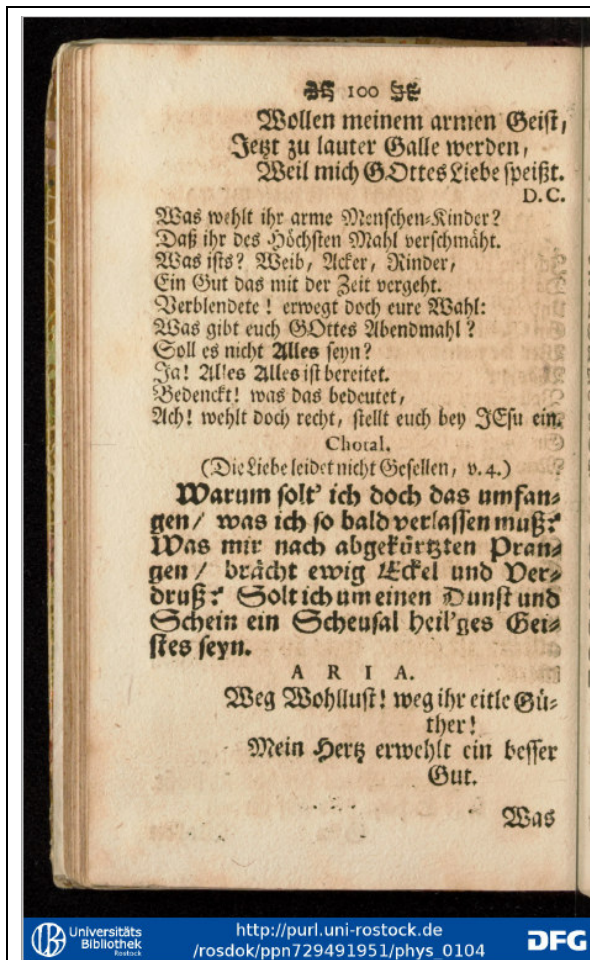 100
Wollen meinem armen Geist,
Jetzt zu lauter Galle werden,
Weil mich GOttes Liebe speißt.
D.C.
Was wehlt ihr arme Menschen-Kinder?
Daß ihr des Höchsten Mahl verschmäht.
Was ists? Weib, Acker, Rinder,
Ein Gut das mit der Zeit vergeht.
Verblendete! erwegt doch eure Wahl:
Was gibt euch GOttes Abendmahl?
Soll es nicht Alles seyn?
Ja! Alles Alles ist bereitet.
Bedenckt! was das bedeutet,
Ach! wehlt doch recht, stellt euch bey JEsu ein.
Choral.
(Die Liebe leidet nicht Gesellen, v. 4.)
Warum solt' ich doch das umfan-
gen/ was ich so bald verlassen muß?
Was mir nach abgekürtzten Pran-
gen/ brächt ewig Eckel und Ver-
druß? Solt ich um einen Dunst und
Schein ein Scheusal heil'ges Gei-
stes seyn.
ARIA.
Weg Wohllust! weg ihr eitle Gü-
ther!
Mein Hertz erwehlt ein besser
Gut.
Was
Universitäts
Bibliothek
Rostock
http://purl.uni-rostock.de
/rosdok/ppn729491951/phys_0104
DFG